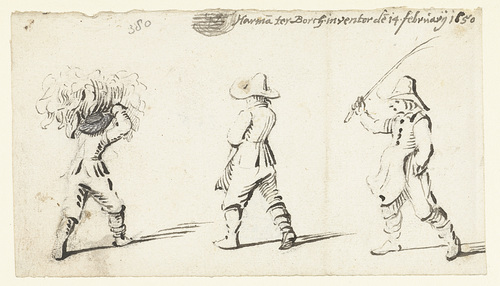 380
Harma ter Borch inventor de 14 februarij 1650